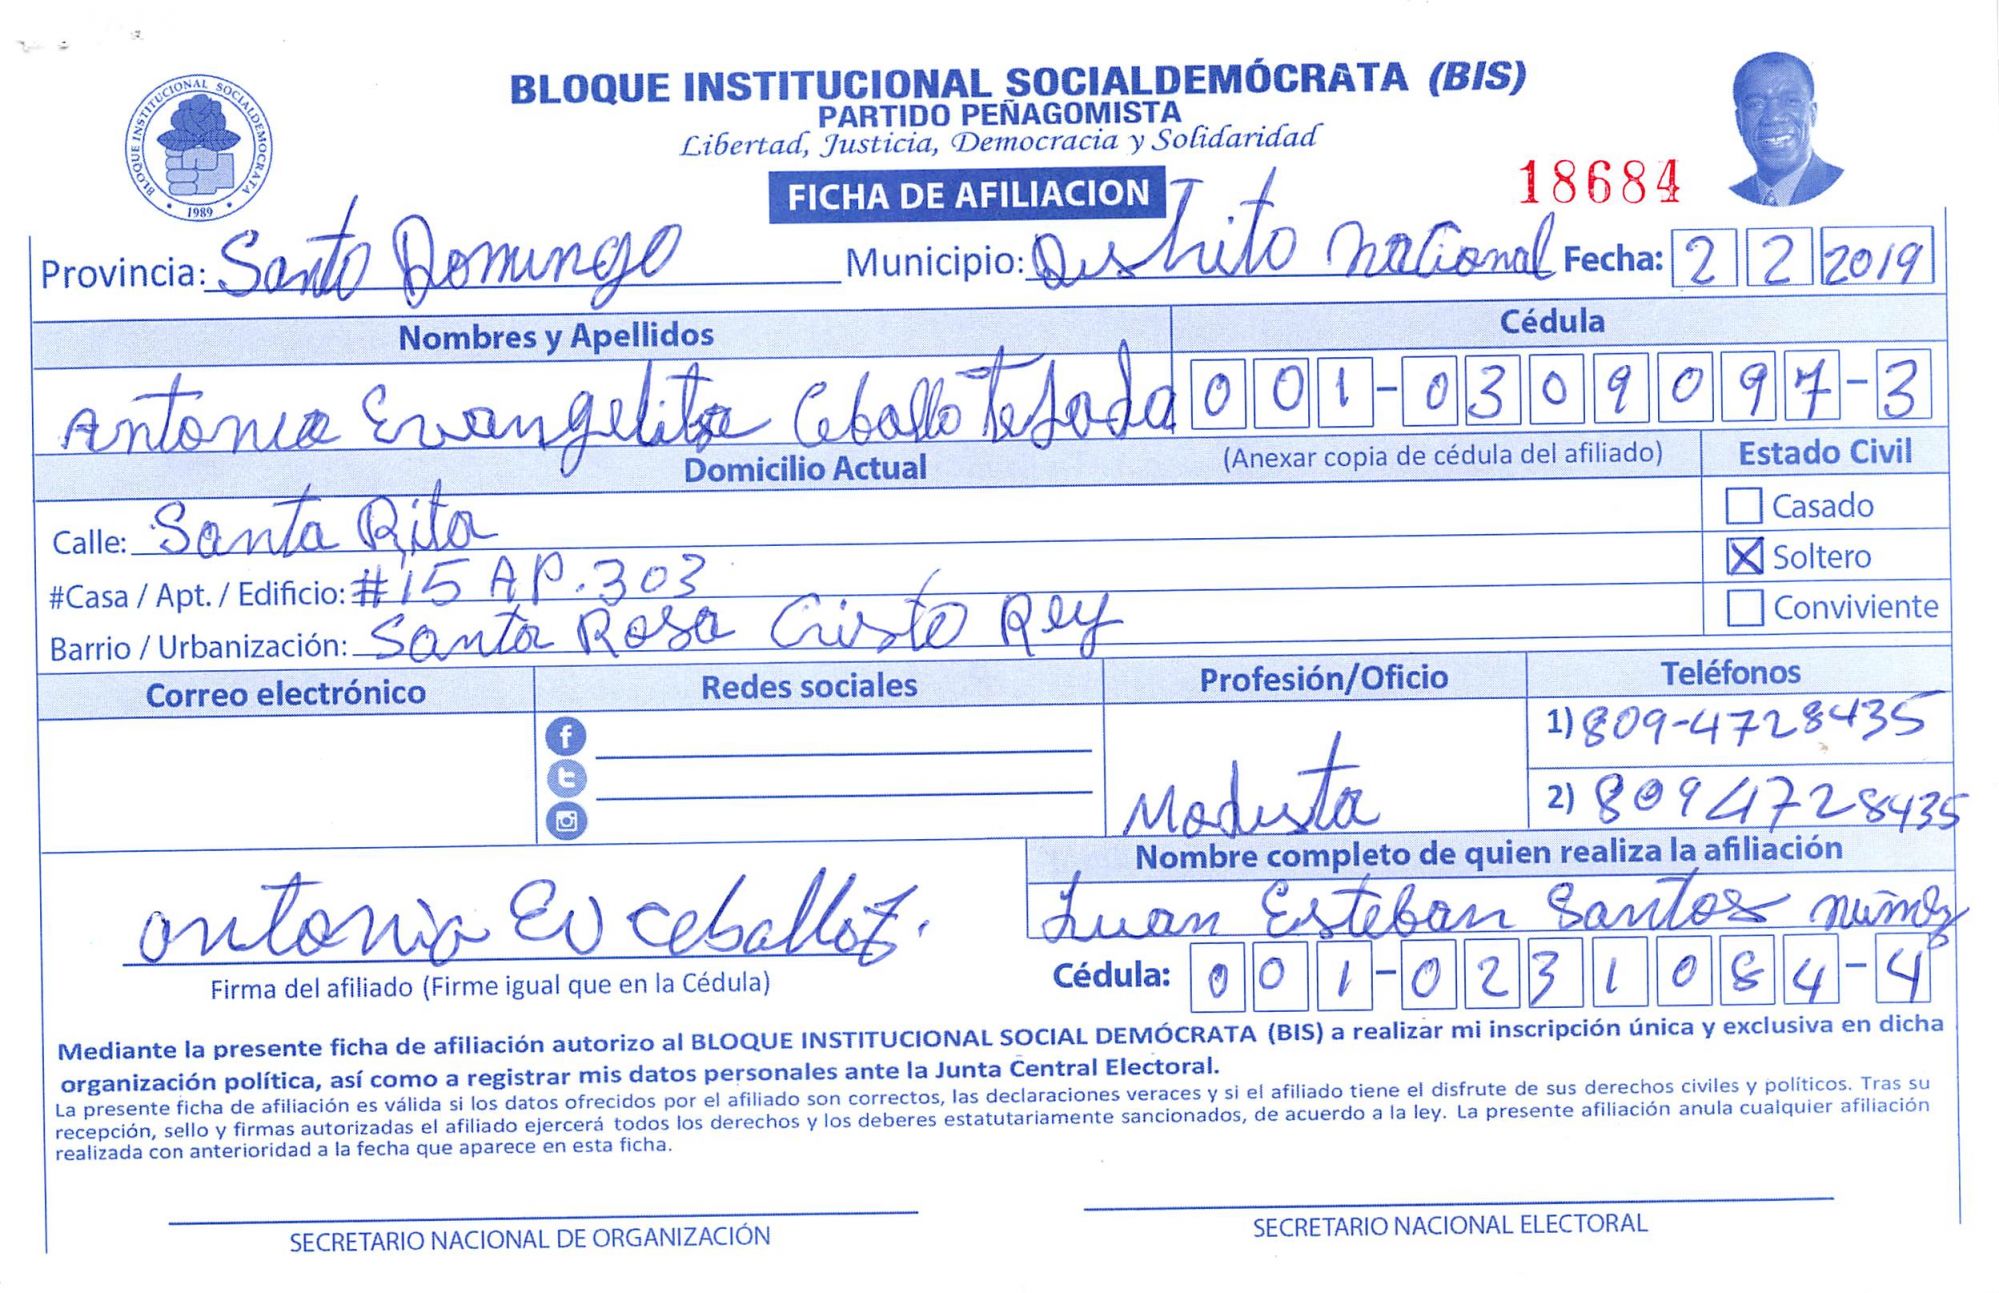 BLOQUE INSTITUCIONAL SOCIALDEMÓCRATA (BIS)
PARTIDO PEÑAGOMISTA
Libertad, Justicia, Democracia y Solidaridad
BLOQUE INSTITUCIONAL SOCIALDEMOCRATA
1989
FICHA DE AFILIACION
18684
Provincia: Santo Domingo Municipio: Distrito nacional Fecha: 2 2 2019
Nombres y Apellidos Cédula
Antonia Evangelita Ceballo Tejada 001-0309097-3
Domicilio Actual (Anexar copia de cédula del afiliado) Estado Civil
Calle: Santa Rita Casado
#Casa / Apt. / Edificio: #15 AP. 303 X Soltero
Barrio / Urbanización: Santa Rosa Cristo Rey Conviviente
Correo electrónico Redes sociales Profesión/Oficio Teléfonos
1) 809-4728435
Modista
2) 8094728435
Nombre completo de quien realiza la afiliación
Antonia Ev Ceballo T. Juan Esteban Santos Núñez
Firma del afiliado (Firme igual que en la Cédula) Cédula: 001-0231084-4
Mediante la presente ficha de afiliación autorizo al BLOQUE INSTITUCIONAL SOCIAL DEMÓCRATA (BIS) a realizar mi inscripción única y exclusiva en dicha
organización política, así como a registrar mis datos personales ante la Junta Central Electoral.
La presente ficha de afiliación es válida si los datos ofrecidos por el afiliado son correctos, las declaraciones veraces y si el afiliado tiene el disfrute de sus derechos civiles y políticos. Tras su
recepción, sello y firmas autorizadas el afiliado ejercerá todos los derechos y los deberes estatutariamente sancionados, de acuerdo a la ley. La presente afiliación anula cualquier afiliación
realizada con anterioridad a la fecha que aparece en esta ficha.
SECRETARIO NACIONAL DE ORGANIZACIÓN SECRETARIO NACIONAL ELECTORAL